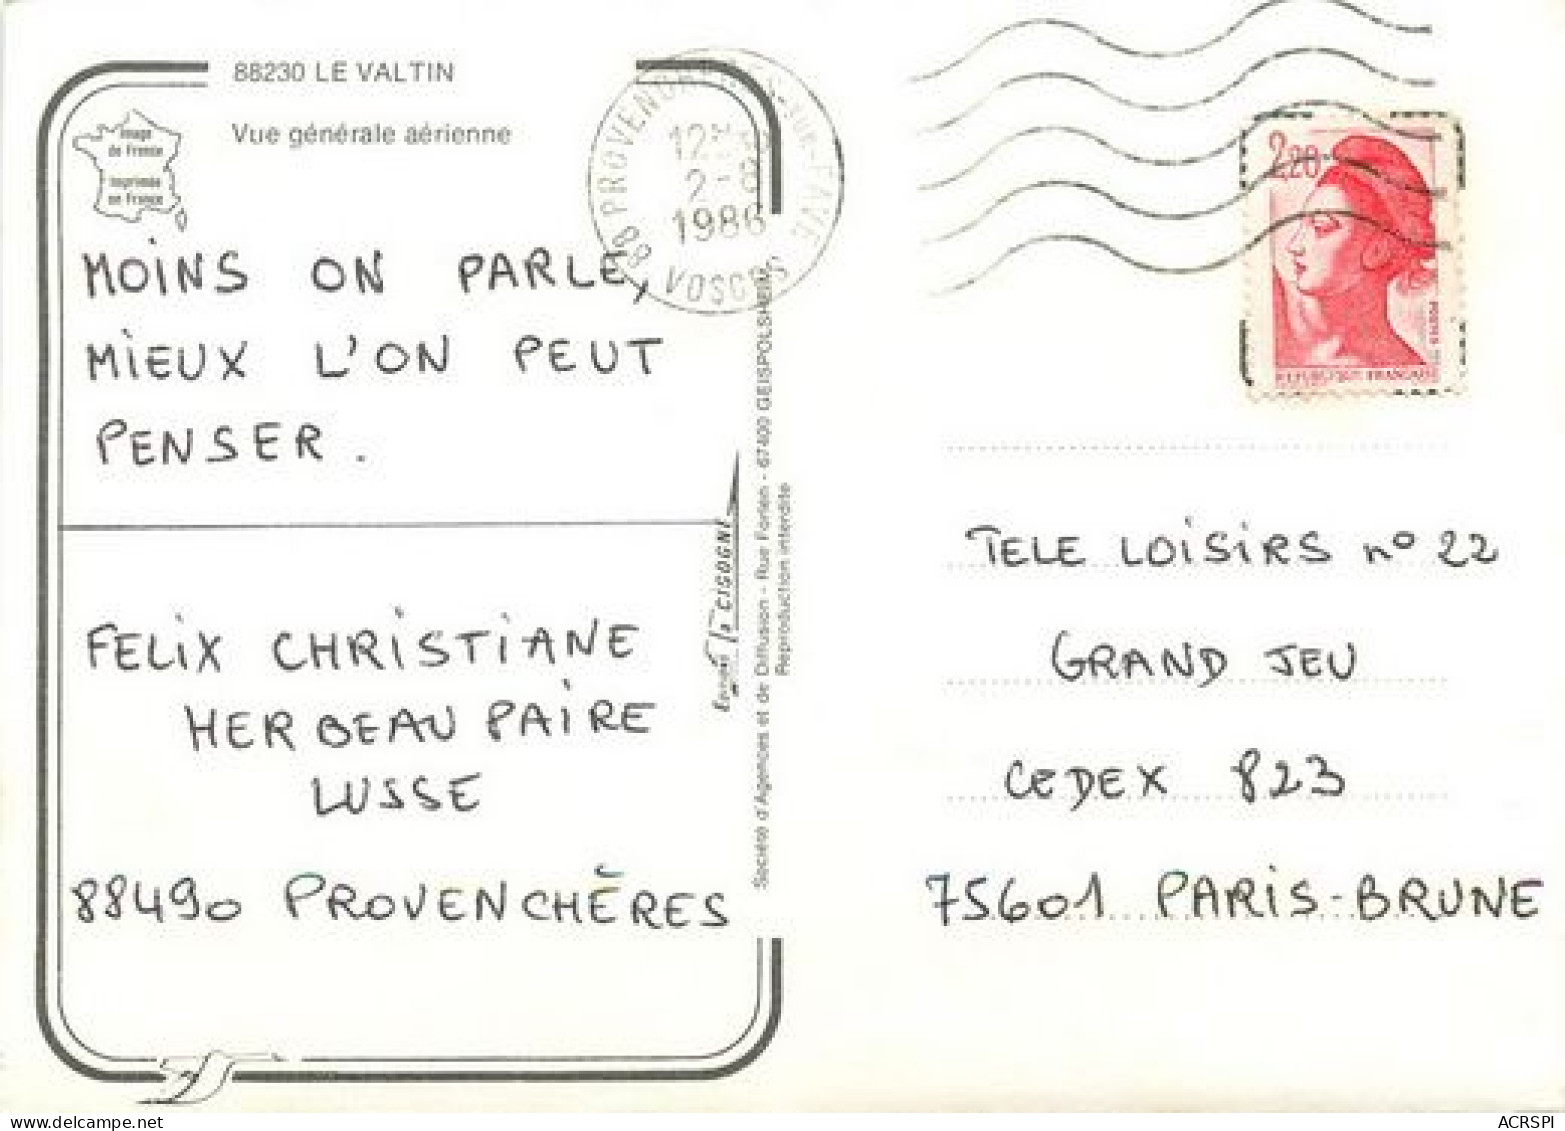 88230 LE VALTIN
Vue générale aérienne
Image
de France
Imprimée
en France
88 PROVENCHERES-sur-FAVE
12H
2-8
1986
VOSGES
2,20
POSTES
REPUBLIQUE FRANÇAISE
MOINS ON PARLE,
MIEUX L'ON PEUT
PENSER.
FELIX CHRISTIANE
HERBEAUPAIRE
LUSSE
88490 PROVENCHÈRES
Editions la CIGOGNE
Société d'Agences et de Diffusion - Rue Forlen - 67400 GEISPOLSHEIM
Reproduction interdite
TELE LOISIRS n° 22
GRAND JEU
CEDEX 823
75601 PARIS-BRUNE
ACRSPI